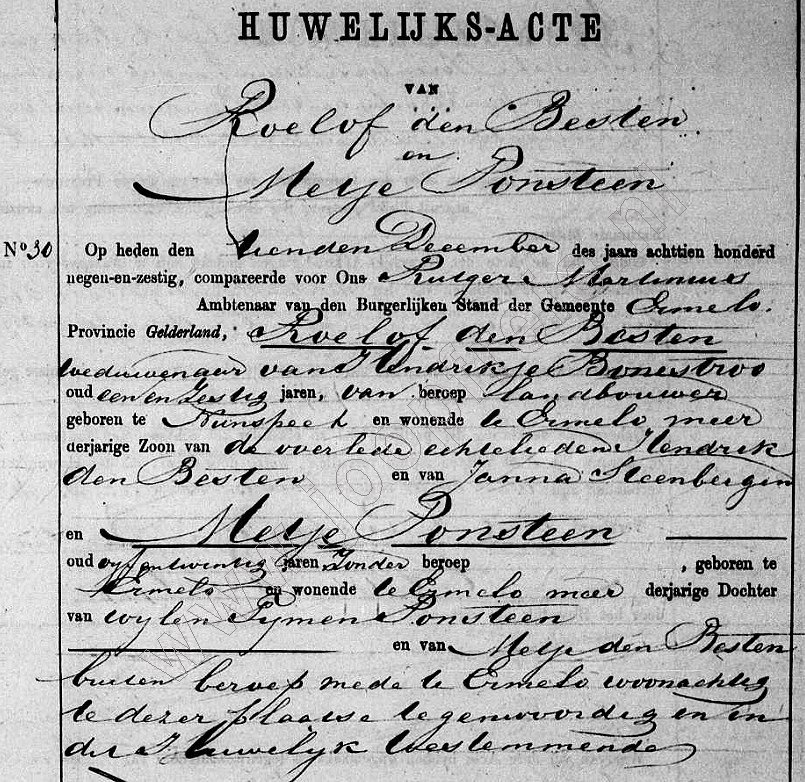 HUWELIJKS-ACTE
VAN
Roelof den Besten
en
Metje Ponsteen
No 30 Op heden den tienden December des jaars achttien honderd
negen-en-zestig, compareerde voor Ons Rutger Martinius
Ambtenaar van den Burgerlijken Stand der Gemeente Ermelo.
Provincie Gelderland, Roelof den Besten
weduwenaar van Hendrikje Bonestroo
oud een en zestig jaren, van beroep landbouwer
geboren te Nunspeet en wonende te Ermelo meer
derjarige Zoon van de overlede echtelieden Hendrik
den Besten en van Janna Steenbergen
en Metje Ponsteen
oud vyf en twintig jaren Zonder beroep , geboren te
Ermelo en wonende te Ermelo meer derjarige Dochter
van wylen Tymen Ponsteen
en van Metje den Besten
buiten beroep mede te Ermelo woonachtig
te dezer plaatse tegenwoordig en in
dit Huwelyk toestemmende